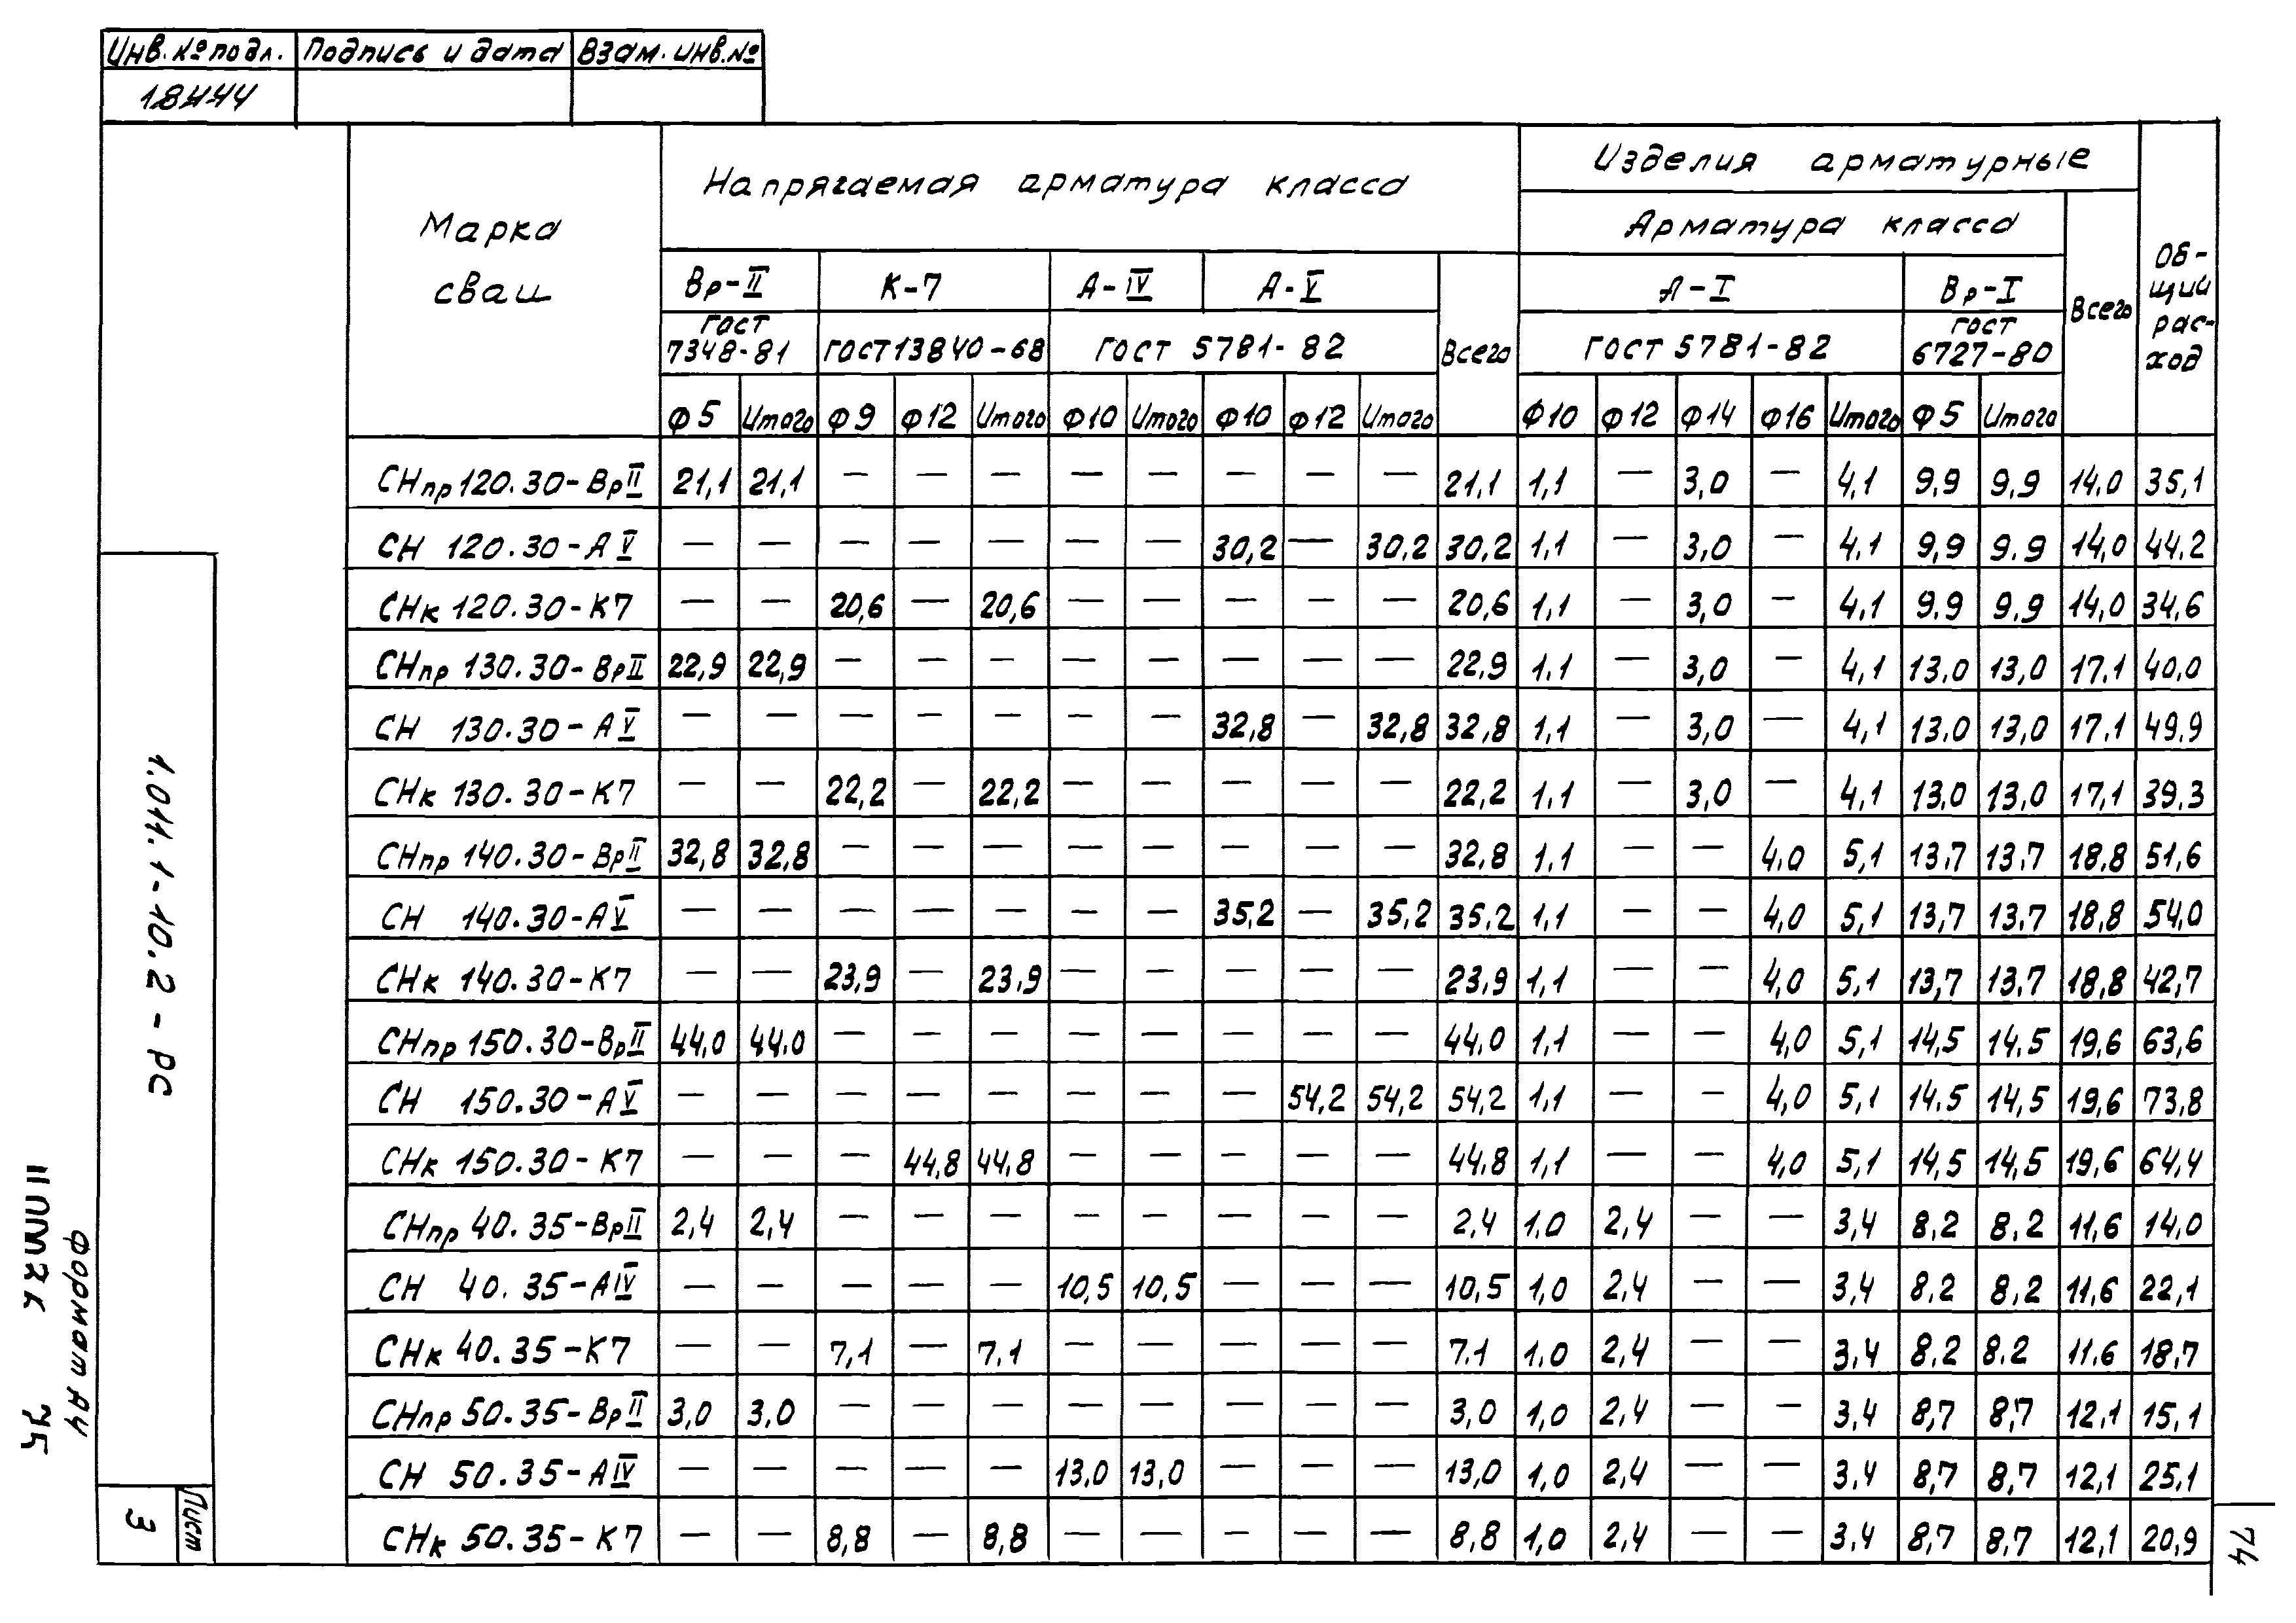 Инв.№ подл. Подпись и дата Взам.инв.№
18444
Марка сваи
Напрягаемая арматура класса
Изделия арматурные
Арматура класса
Всего
Общий рас-ход
Вр-II К-7 А-IV А-V Всего А-I Вр-I
ГОСТ 7348-81 ГОСТ 13840-68 ГОСТ 5781-82 ГОСТ 5781-82 ГОСТ 6727-80
Ф5 Итого Ф9 Ф12 Итого Ф10 Итого Ф10 Ф12 Итого Ф10 Ф12 Ф14 Ф16 Итого Ф5 Итого
СНпр 120.30-ВрII 21,1 21,1 — — — — — — — — 21,1 1,1 — 3,0 — 4,1 9,9 9,9 14,0 35,1
СН 120.30-АV — — — — — — — 30,2 — 30,2 30,2 1,1 — 3,0 — 4,1 9,9 9.9 14,0 44,2
СНк 120.30-К7 — — 20,6 — 20,6 — — — — — 20,6 1,1 — 3,0 — 4,1 9.9 9,9 14,0 34,6
СНпр 130.30-ВрII 22,9 22,9 — — — — — — — — 22,9 1,1 — 3,0 — 4,1 13,0 13,0 17,1 40,0
СН 130.30-АV — — — — — — — 32,8 — 32,8 32,8 1,1 — 3,0 — 4,1 13,0 13,0 17,1 49,9
СНк 130.30-К7 — — 22,2 — 22,2 — — — — — 22,2 1,1 — 3,0 — 4,1 13,0 13,0 17,1 39,3
СНпр 140.30-ВрII 32,8 32,8 — — — — — — — — 32,8 1,1 — — 4,0 5,1 13,7 13,7 18,8 51,6
СН 140.30-АV — — — — — — — 35,2 — 35,2 35,2 1,1 — — 4,0 5,1 13,7 13,7 18,8 54,0
СНк 140.30-К7 — — 23,9 — 23,9 — — — — — 23,9 1,1 — — 4,0 5,1 13,7 13,7 18,8 42,7
СНпр 150.30-ВрII 44,0 44,0 — — — — — — — — 44,0 1,1 — — 4,0 5,1 14,5 14,5 19,6 63,6
СН 150.30-АV — — — — — — — — 54,2 54,2 54,2 1,1 — — 4,0 5,1 14,5 14,5 19,6 73,8
СНк 150.30-К7 — — — 44,8 44,8 — — — — — 44,8 1,1 — — 4,0 5,1 14,5 14,5 19,6 64,4
СНпр 40.35-ВрII 2,4 2,4 — — — — — — — — 2,4 1,0 2,4 — — 3,4 8,2 8,2 11,6 14,0
СН 40.35-АIV — — — — — 10,5 10,5 — — — 10,5 1,0 2,4 — — 3,4 8,2 8,2 11,6 22,1
СНк 40.35-К7 — — 7,1 — 7,1 — — — — — 7,1 1,0 2,4 — — 3,4 8,2 8,2 11,6 18,7
СНпр 50.35-ВрII 3,0 3,0 — — — — — — — — 3,0 1,0 2,4 — — 3,4 8,7 8,7 12,1 15,1
СН 50.35-АIV — — — — — 13,0 13,0 — — — 13,0 1,0 2,4 — — 3,4 8,7 8,7 12,1 25,1
СНк 50.35-К7 — — 8,8 — 8,8 — — — — — 8,8 1,0 2,4 — — 3,4 8,7 8,7 12,1 20,9
1.011.1-10.2-РС
Лист
3
формат А4
74